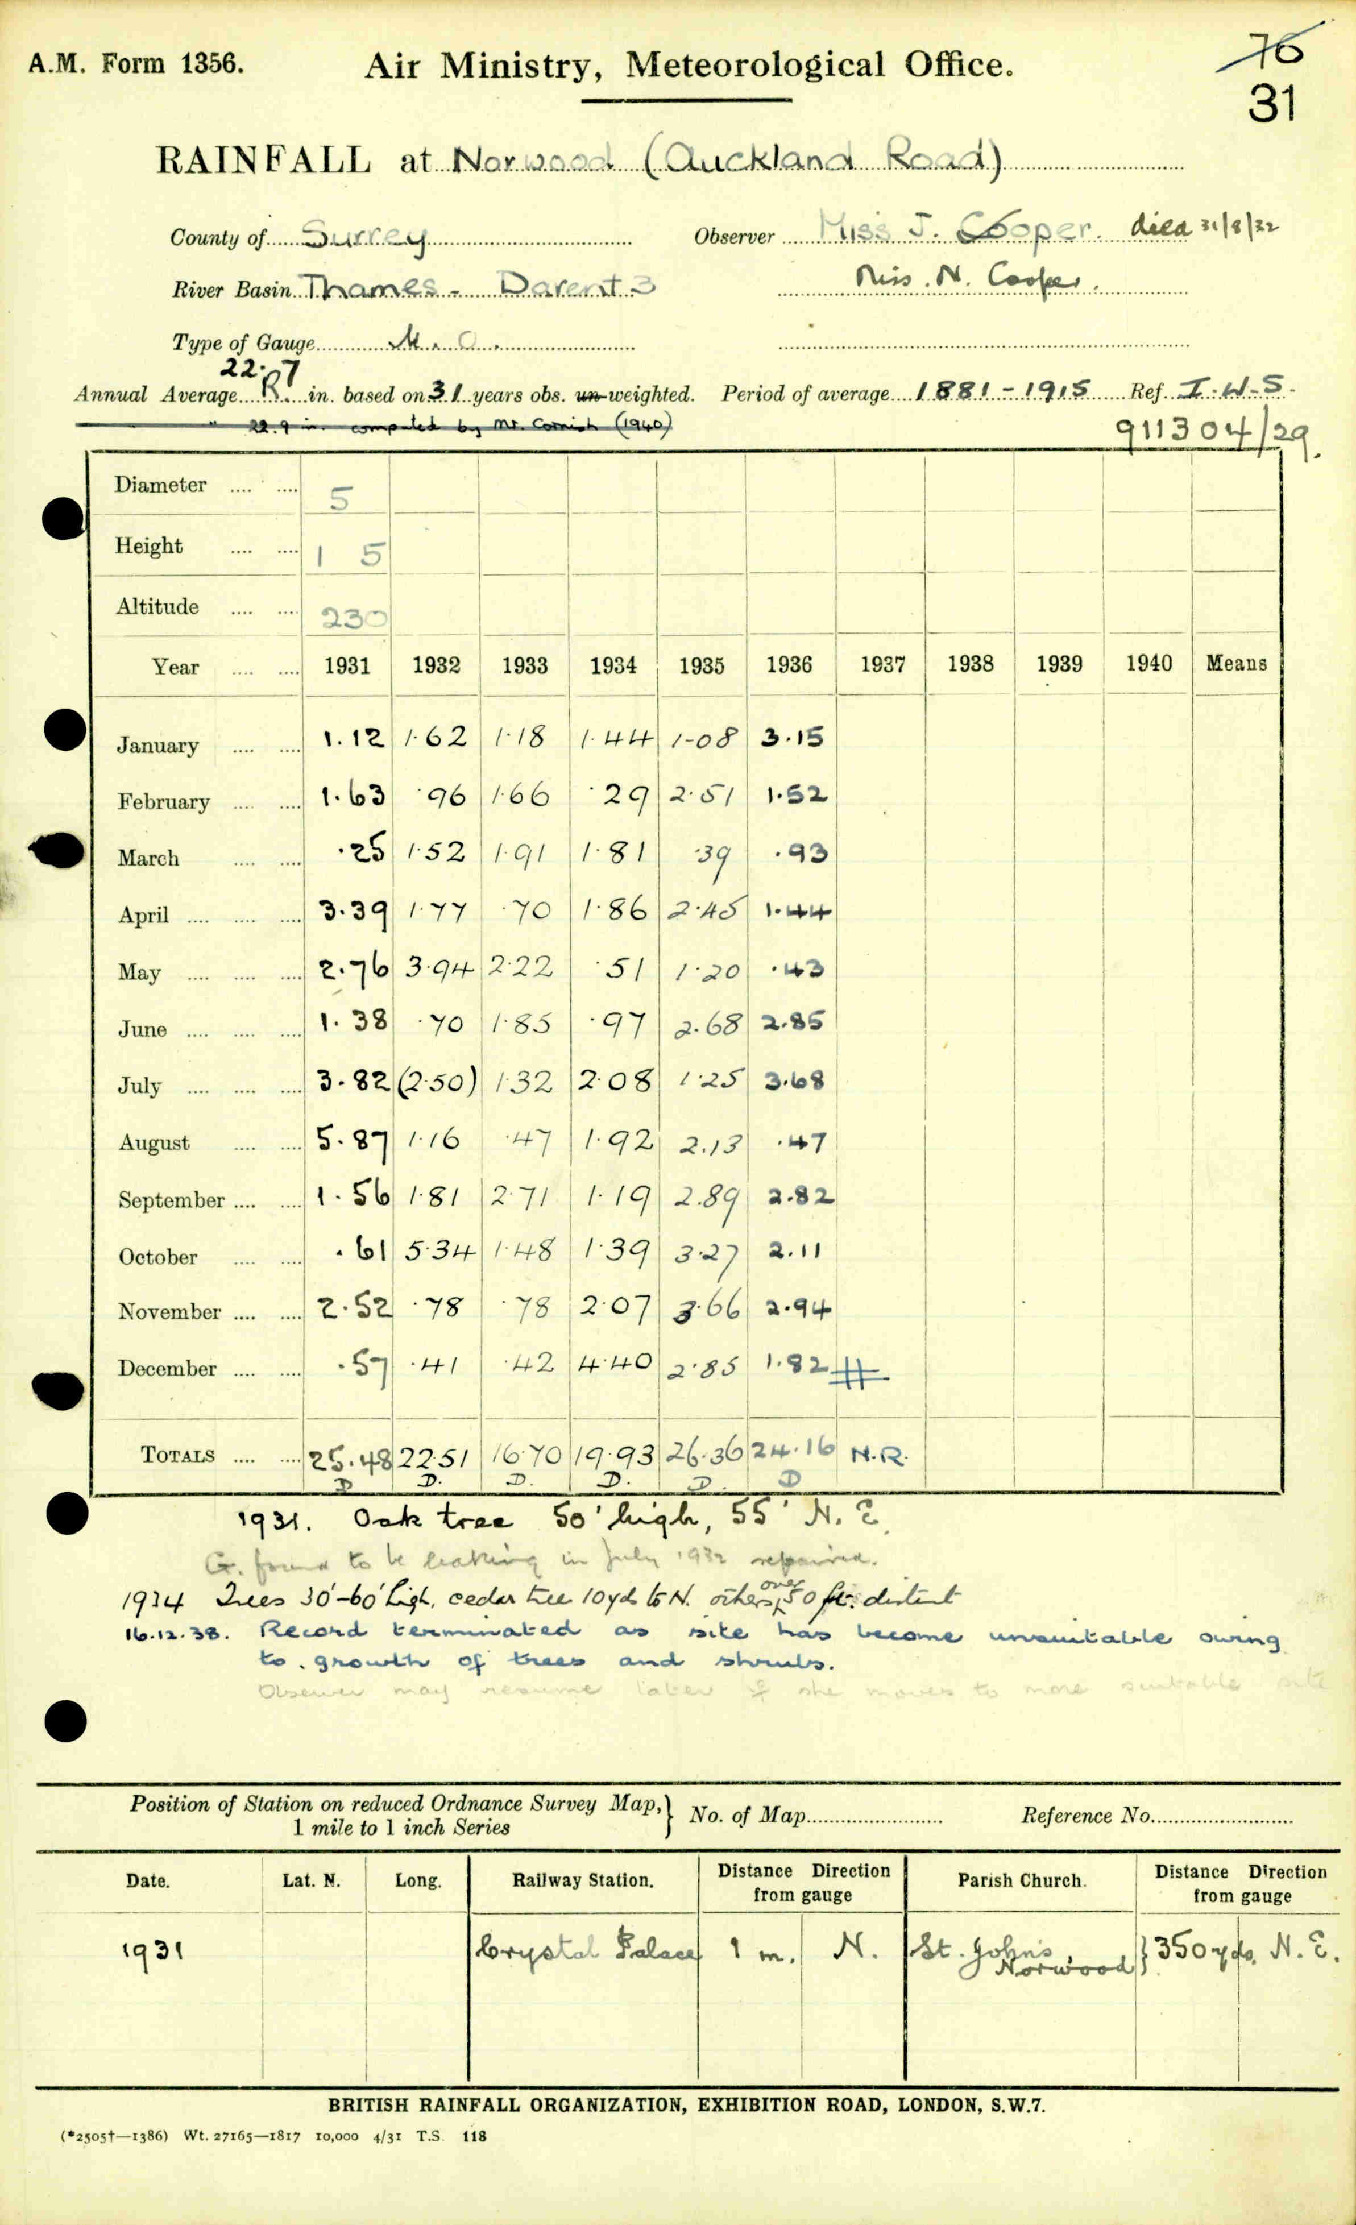 A.M. Form 1356.
Air Ministry, Meteorological Office.
76
31
RAINFALL at Norwood (Auckland Road)
County of Surrey
Observer Miss J. Cooper. died 31/8/32
River Basin Thames - Darent 3
Miss. N. Cooper.
Type of Gauge M.O.
22.7
Annual Average R. in. based on 31 years obs. un-weighted. Period of average 1881-1915 Ref. I.W.S.
" 22.9 in. computed by Mr. Cornish (1940)
911304/29.
Diameter .... .... 5
Height .... .... 1 5
Altitude .... .... 230
Year .... .... 1931 1932 1933 1934 1935 1936 1937 1938 1939 1940 Means
January .... .... 1.12 1.62 1.18 1.44 1.08 3.15
February .... .... 1.63 .96 1.66 .29 2.51 1.52
March .... .... .25 1.52 1.91 1.81 .39 .93
April .... .... .... 3.39 1.77 .70 1.86 2.45 1.44
May .... .... .... 2.76 3.94 2.22 .51 1.20 .43
June .... .... .... 1.38 .70 1.85 .97 2.68 2.85
July .... .... .... 3.82 (2.50) 1.32 2.08 1.25 3.68
August .... .... 5.87 1.16 .47 1.92 2.13 .47
September .... .... 1.56 1.81 2.71 1.19 2.89 2.82
October .... .... .61 5.34 1.48 1.39 3.27 2.11
November .... .... 2.52 .78 .78 2.07 3.66 2.94
December .... .... .57 .41 .42 4.40 2.85 1.82
TOTALS .... .... 25.48 22.51 16.70 19.93 26.36 24.16 N.R.
D D. D. D. D. D
1931. Oak tree 50' high, 55' N.E.
G. found to be leaking in July 1932 repaired.
1934 Trees 30'-60' high, cedar tree 10yds to N. others over 50 ft. distant
16.12.38. Record terminated as site has become unsuitable owing
to growth of trees and shrubs.
Observer may resume later if she moves to more suitable site
Position of Station on reduced Ordnance Survey Map,} No. of Map Reference No.
1 mile to 1 inch Series
Date. Lat. N. Long. Railway Station. Distance Direction from gauge Parish Church. Distance Direction from gauge
1931 Crystal Palace 1 m. N. St. John's, Norwood } 350 yds. N.E.
BRITISH RAINFALL ORGANIZATION, EXHIBITION ROAD, LONDON, S.W.7.
(*2505†—1386) Wt. 27165—1817 10,000 4/31 T.S. 118